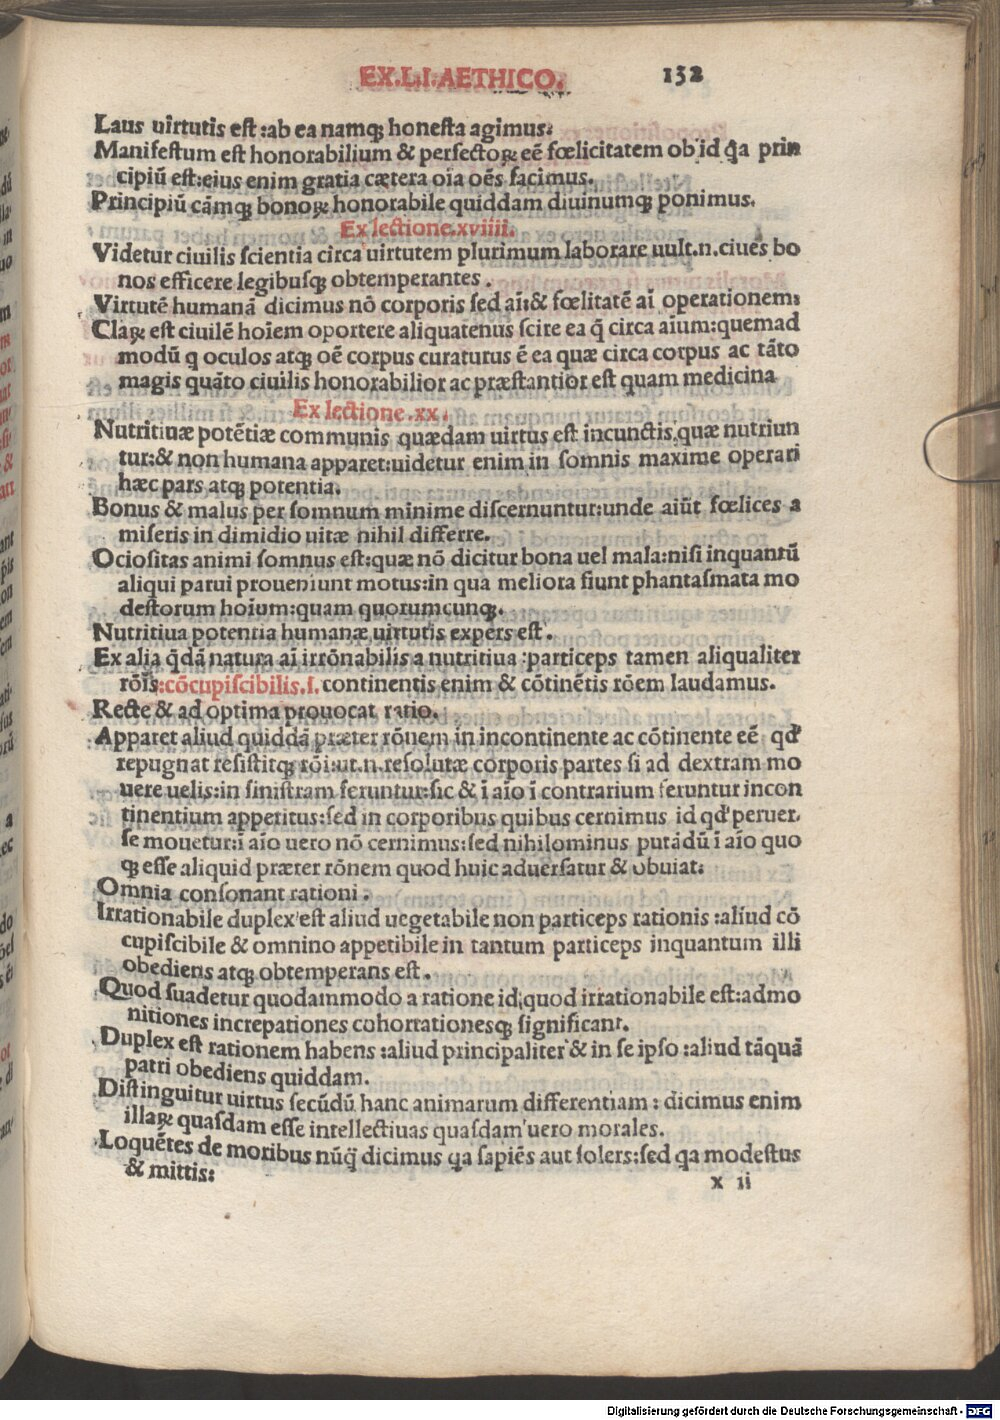 EX.L.I.AETHICO.   132
Laus uirtutis est:ab ea namq; honesta agimus.
Manifestum est honorabilium & perfectoꝝ eē fœlicitatem ob id q̄a prin
cipiū est:eius enim gratia cætera oīa oēs facimus.
Principiū cām̄q; bonoꝝ honorabile quiddam diuinumq; ponimus.
Ex lectione.xviiii.
Videtur ciuilis scientia circa uirtutem plurimum laborare uult.n.ciues bo
nos efficere legibusq; obtemperantes.
Virtutē humanā dicimus nō corporis sed aī:& fœlitatē aī operationem:
Claꝝ est ciuilē hoīem oportere aliquatenus scire ea q̄ circa aīum:quemad
modū q oculos atq; oē corpus curaturus ē ea quæ circa corpus ac tāto
magis quāto ciuilis honorabilior ac præstantior est quam medicina
Ex lectione.xx.
Nutritiuæ potētiæ communis quædam uirtus est incunctis quæ nutriun
tur:& non humana apparet:uidetur enim in somnis maxime operari
hæc pars atq; potentia.
Bonus & malus per somnum minime discernuntur:unde aiūt fœlices a
miseris in dimidio uitæ nihil differre.
Ociositas animi somnus est:quæ nō dicitur bona uel mala:nisi inquantū
aliqui parui proueniunt motus:in qua meliora fiunt phantasmata mo
destorum hoīum:quam quorumcunq;.
Nutritiua potentia humanæ uirtutis expers est.
Ex alia q̄dā natura aī irrōnabilis a nutritiua:particeps tamen aliqualiter
rōis:cōcupiscibilis.s. continentis enim & cōtinētis rōem laudamus.
Recte & ad optima prouocat ratio.
Apparet aliud quiddā præter rōnem in incontinente ac cōtinente eē qd
repugnat resistitq; rōi:ut.n.resolutæ corporis partes si ad dextram mo
uere uelis:in sinistram feruntur:sic & ī aīo ī contrarium feruntur incon
tinentium appetitus:sed in corporibus quibus cernimus id qd peruer
se mouetur:ī aīo uero nō cernimus:sed nihilominus putādū ī aīo quo
q; esse aliquid præter rōnem quod huic aduersatur & obuiat:
Omnia consonant rationi.
Irrationabile duplex est aliud uegetabile non particeps rationis:aliud cō
cupiscibile & omnino appetibile in tantum particeps inquantum illi
obediens atq; obtemperans est.
Quod suadetur quodammodo a ratione id quod irrationabile est:admo
nitiones increpationes cohortationesq; significant.
Duplex est rationem habens:aliud principaliter & in se ipso:aliud tāquā
patri obediens quiddam.
Distinguitur uirtus secūdū hanc animarum differentiam:dicimus enim
illaꝝ quasdam esse intellectiuas quasdam uero morales.
Loquētes de moribus nūq̄ dicimus qa sapiēs aut solers:sed qa modestus
& mittis:
x ii
Digitalisierung gefördert durch die Deutsche Forschungsgemeinschaft - DFG